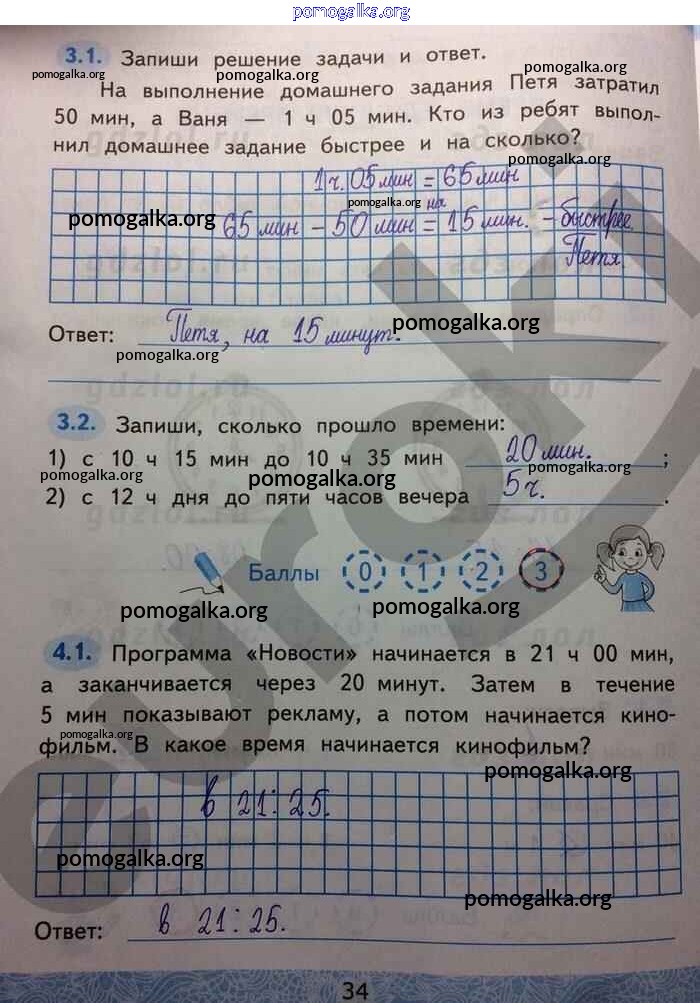 pomogalka.org
3.1. Запиши решение задачи и ответ.
pomogalka.org pomogalka.org pomogalka.org
На выполнение домашнего задания Петя затратил
50 мин, а Ваня — 1 ч 05 мин. Кто из ребят выпол-
нил домашнее задание быстрее и на сколько?
pomogalka.org
1 ч. 05 мин = 65 мин
pomogalka.org pomogalka.org на
65 мин - 50 мин = 15 мин. - быстрее
Петя
Ответ: Петя, на 15 минут.
pomogalka.org
pomogalka.org
3.2. Запиши, сколько прошло времени:
1) с 10 ч 15 мин до 10 ч 35 мин 20 мин. ;
pomogalka.org pomogalka.org pomogalka.org
2) с 12 ч дня до пяти часов вечера 5 ч. .
Баллы 0 1 2 3
pomogalka.org pomogalka.org
4.1. Программа «Новости» начинается в 21 ч 00 мин,
а заканчивается через 20 минут. Затем в течение
5 мин показывают рекламу, а потом начинается кино-
pomogalka.org
фильм. В какое время начинается кинофильм?
pomogalka.org
в 21:25.
pomogalka.org
pomogalka.org
Ответ: в 21:25.
34